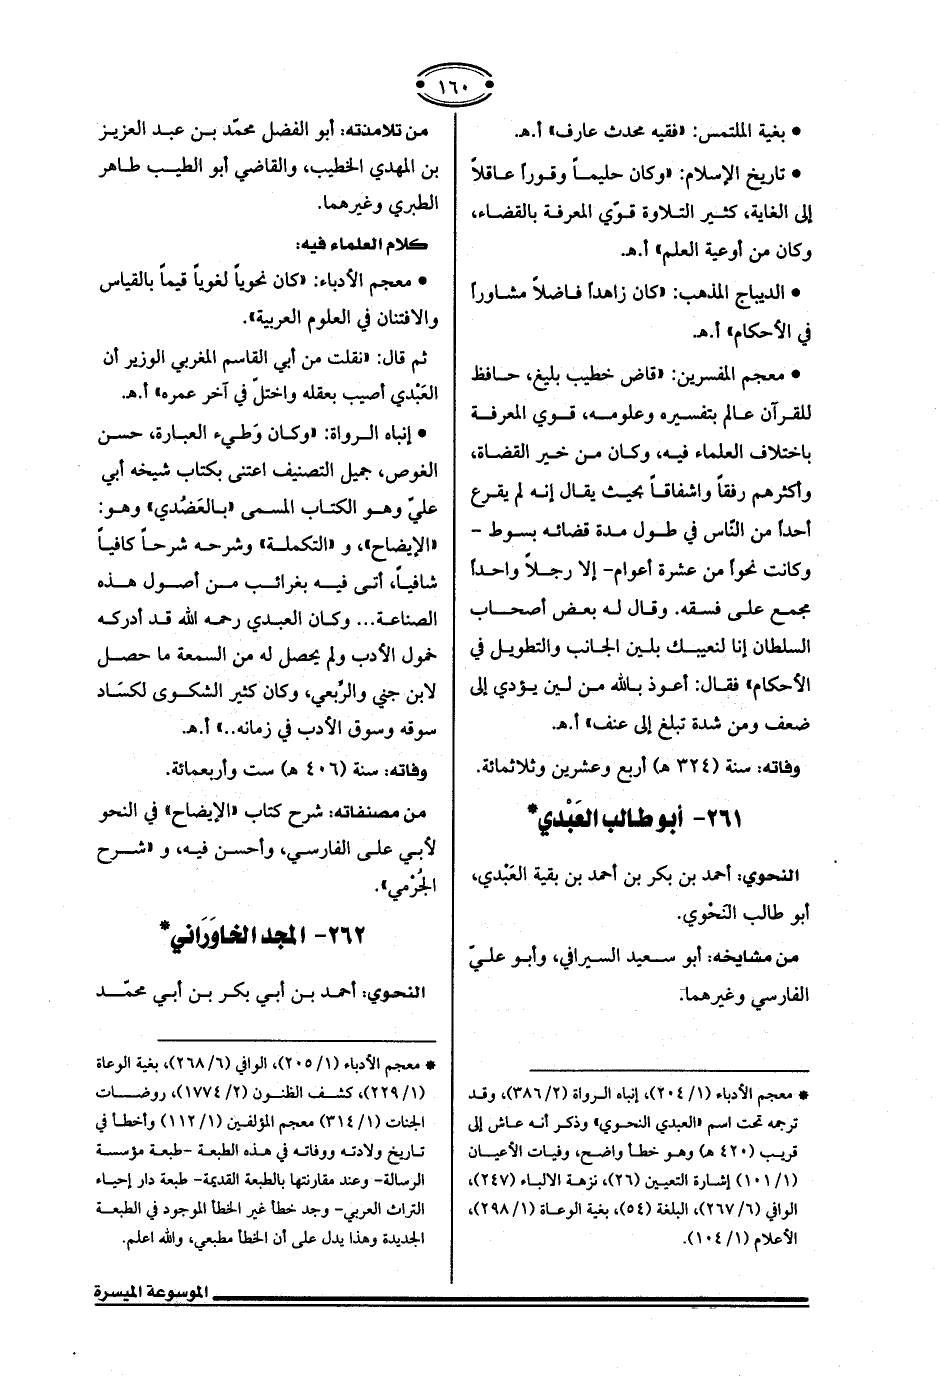 ١٦٠
• بغية الملتمس: «فقيه محدث عارف» أ.هـ.
• تاريخ الإسلام: «وكان حليماً وقوراً عاقلاً
إلى الغاية، كثير التلاوة قوّي المعرفة بالقضاء،
وكان من أوعية العلم» أ.هـ.
• الديباج المذهب: «كان زاهداً فاضلاً مشاوراً
في الأحكام» أ.هـ.
• معجم المفسرين: «قاض خطيب بليغ، حافظ
للقرآن عالم بتفسيره وعلومه، قوي المعرفة
باختلاف العلماء فيه، وكان من خير القضاة،
وأكثرهم رفقاً واشفاقاً بحيث يقال إنه لم يقرع
أحداً من النّاس في طول مدة قضائه بسوط -
وكانت نحواً من عشرة أعوام- إلا رجلاً واحداً
مجمع على فسقه. وقال له بعض أصحاب
السلطان إنا لنعيبك بلين الجانب والتطويل في
الأحكام» فقال: أعوذ بالله من لين يؤدي إلى
ضعف ومن شدة تبلغ إلى عنف» أ.هـ.
وفاته: سنة (٣٢٤ هـ) أربع وعشرين وثلاثمائة.
٢٦١- أبو طالب العَبْدي*
النحوي: أحمد بن بكر بن أحمد بن بقية العَبْدي،
أبو طالب النَحْوي.
من مشايخه: أبو سعيد السيرافي، وأبو عليّ
الفارسي وغيرهما.
* معجم الأدباء (١/ ٢٠٤)، إنباه الرواة (٢/ ٣٨٦)، وقد
ترجمه تحت اسم «العبدي النحوي» وذكر أنه عاش إلى
قريب (٤٢٠ هـ) وهو خطأ واضح، وفيات الأعيان
(١/ ١٠١) إشارة التعيين (٢٦)، نزهة الالباء (٢٤٧)،
الوافي (٦/ ٢٦٧)، البلغة (٥٤)، بغية الوعاة (١/ ٢٩٨)،
الأعلام (١/ ١٠٤).
من تلامذته: أبو الفضل محمّد بن عبد العزيز
بن المهدي الخطيب، والقاضي أبو الطيب طاهر
الطبري وغيرهما.
كلام العلماء فيه:
• معجم الأدباء: «كان نحوياً لغوياً قيماً بالقياس
والافتنان في العلوم العربية».
ثم قال: «نقلت من أبي القاسم المغربي الوزير أن
العَبْدي أصيب بعقله واختلّ في آخر عمره» أ.هـ.
• إنباه الرواة: «وكان وَطيء العبارة، حسن
الغوص، جميل التصنيف اعتنى بكتاب شيخه أبي
عليّ وهو الكتاب المسمى «بالعَضُدي» وهو:
«الإيضاح»، و «التكملة» وشرحه شرحاً كافياً
شافياً، أتى فيه بغرائب من أصول هذه
الصناعة... وكان العبدي رحمه الله قد أدركه
خمول الأدب ولم يحصل له من السمعة ما حصل
لابن جني والرِّبعي، وكان كثير الشكوى لكسَاد
سوقه وسوق الأدب في زمانه..» أ.هـ.
وفاته: سنة (٤٠٦ هـ) ست وأربعمائة.
من مصنفاته: شرح كتاب «الإيضاح» في النحو
لأبي على الفارسي، وأحسن فيه، و «شرح
الجُرْمي».
٢٦٢- المجد الخاوَرَاني*
النحوي: أحمد بن أبي بكر بن أبي محمّد
* معجم الأدباء (١/ ٢٠٥)، الوافي (٦/ ٢٦٨)، بغية الوعاة
(١/ ٢٢٩)، كشف الظنون (٢/ ١٧٧٤)، روضات
الجنات (١/ ٣١٤) معجم المؤلفين (١/ ١١٢) وأخطأ في
تاريخ ولادته ووفاته في هذه الطبعة -طبعة مؤسسة
الرسالة- وعند مقارنتها بالطبعة القديمة- طبعة دار إحياء
التراث العربي- وجد خطأ غير الخطأ الموجود في الطبعة
الجديدة وهذا يدل على أن الخطأ مطبعي، والله اعلم.
الموسوعة الميسرة